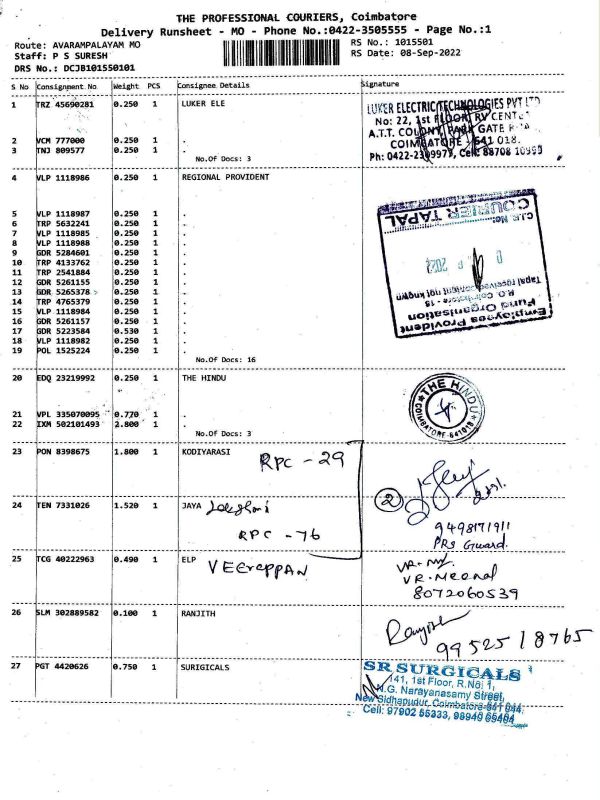 THE PROFESSIONAL COURIERS, Coimbatore
Delivery Runsheet - MO - Phone No.:0422-3505555 - Page No.:1
Route: AVARAMPALAYAM MO
RS No.: 1015501
Staff: P S SURESH
RS Date: 08-Sep-2022
DRS No.: DCJB101550101
S No Consignment No Weight PCS Consignee Details Signature
1 TRZ 45690281 0.250 1 LUKER ELE
LUKER ELECTRIC TECHNOLOGIES PVT LTD
No: 22, 1st FLOOR, RV CENTE
A.T.T. COLONY, PARK GATE
COIMBATORE 641 018.
Ph: 0422-2309977, Cell: 88708 10993
2 VCM 777000 0.250 1 .
3 TNJ 809577 0.250 1 .
No.Of Docs: 3
4 VLP 1118986 0.250 1 REGIONAL PROVIDENT
5 VLP 1118987 0.250 1 .
6 TRP 5632241 0.250 1 .
7 VLP 1118985 0.250 1 .
8 VLP 1118988 0.250 1 .
9 GDR 5284601 0.250 1 .
10 TRP 4133762 0.250 1 .
11 TRP 2541884 0.250 1 .
12 GDR 5261155 0.250 1 .
13 GDR 5265378 0.250 1 .
14 TRP 4765379 0.250 1 .
15 VLP 1118984 0.250 1 .
16 GDR 5261157 0.250 1 .
17 GDR 5223584 0.530 1 .
18 VLP 1118982 0.250 1 .
19 POL 1525224 0.250 1 .
No.Of Docs: 16
Employees Provident
Fund Organisation
R.O. Coimbatore - 18
Tapal received content not known
2022
C.I.R. No:
COURIER TAPAL
20 EDQ 23219992 0.250 1 THE HINDU
THE HINDU
COIMBATORE-641018
21 VPL 335070095 0.770 1 .
22 IXM 502101493 2.800 1 .
No.Of Docs: 3
23 PON 8398675 1.800 1 KODIYARASI
RPC - 29
24 TEN 7331026 1.520 1 JAYA Lakshmi
RPC - 76
2
9498171911
PRS Guard.
25 TCG 40222963 0.490 1 ELP
VEErappAN
VR. Meenal
8072060539
26 SLM 302889582 0.100 1 RANJITH
Ranjith
9952518765
27 PGT 4420626 0.750 1 SURIGICALS
SR SURGICALS
141, 1st Floor, R.No: 1,
N.G. Narayanasamy Street,
New Sidhapudur, Coimbatore-641 044.
Cell: 97902 55333, 98940 65404